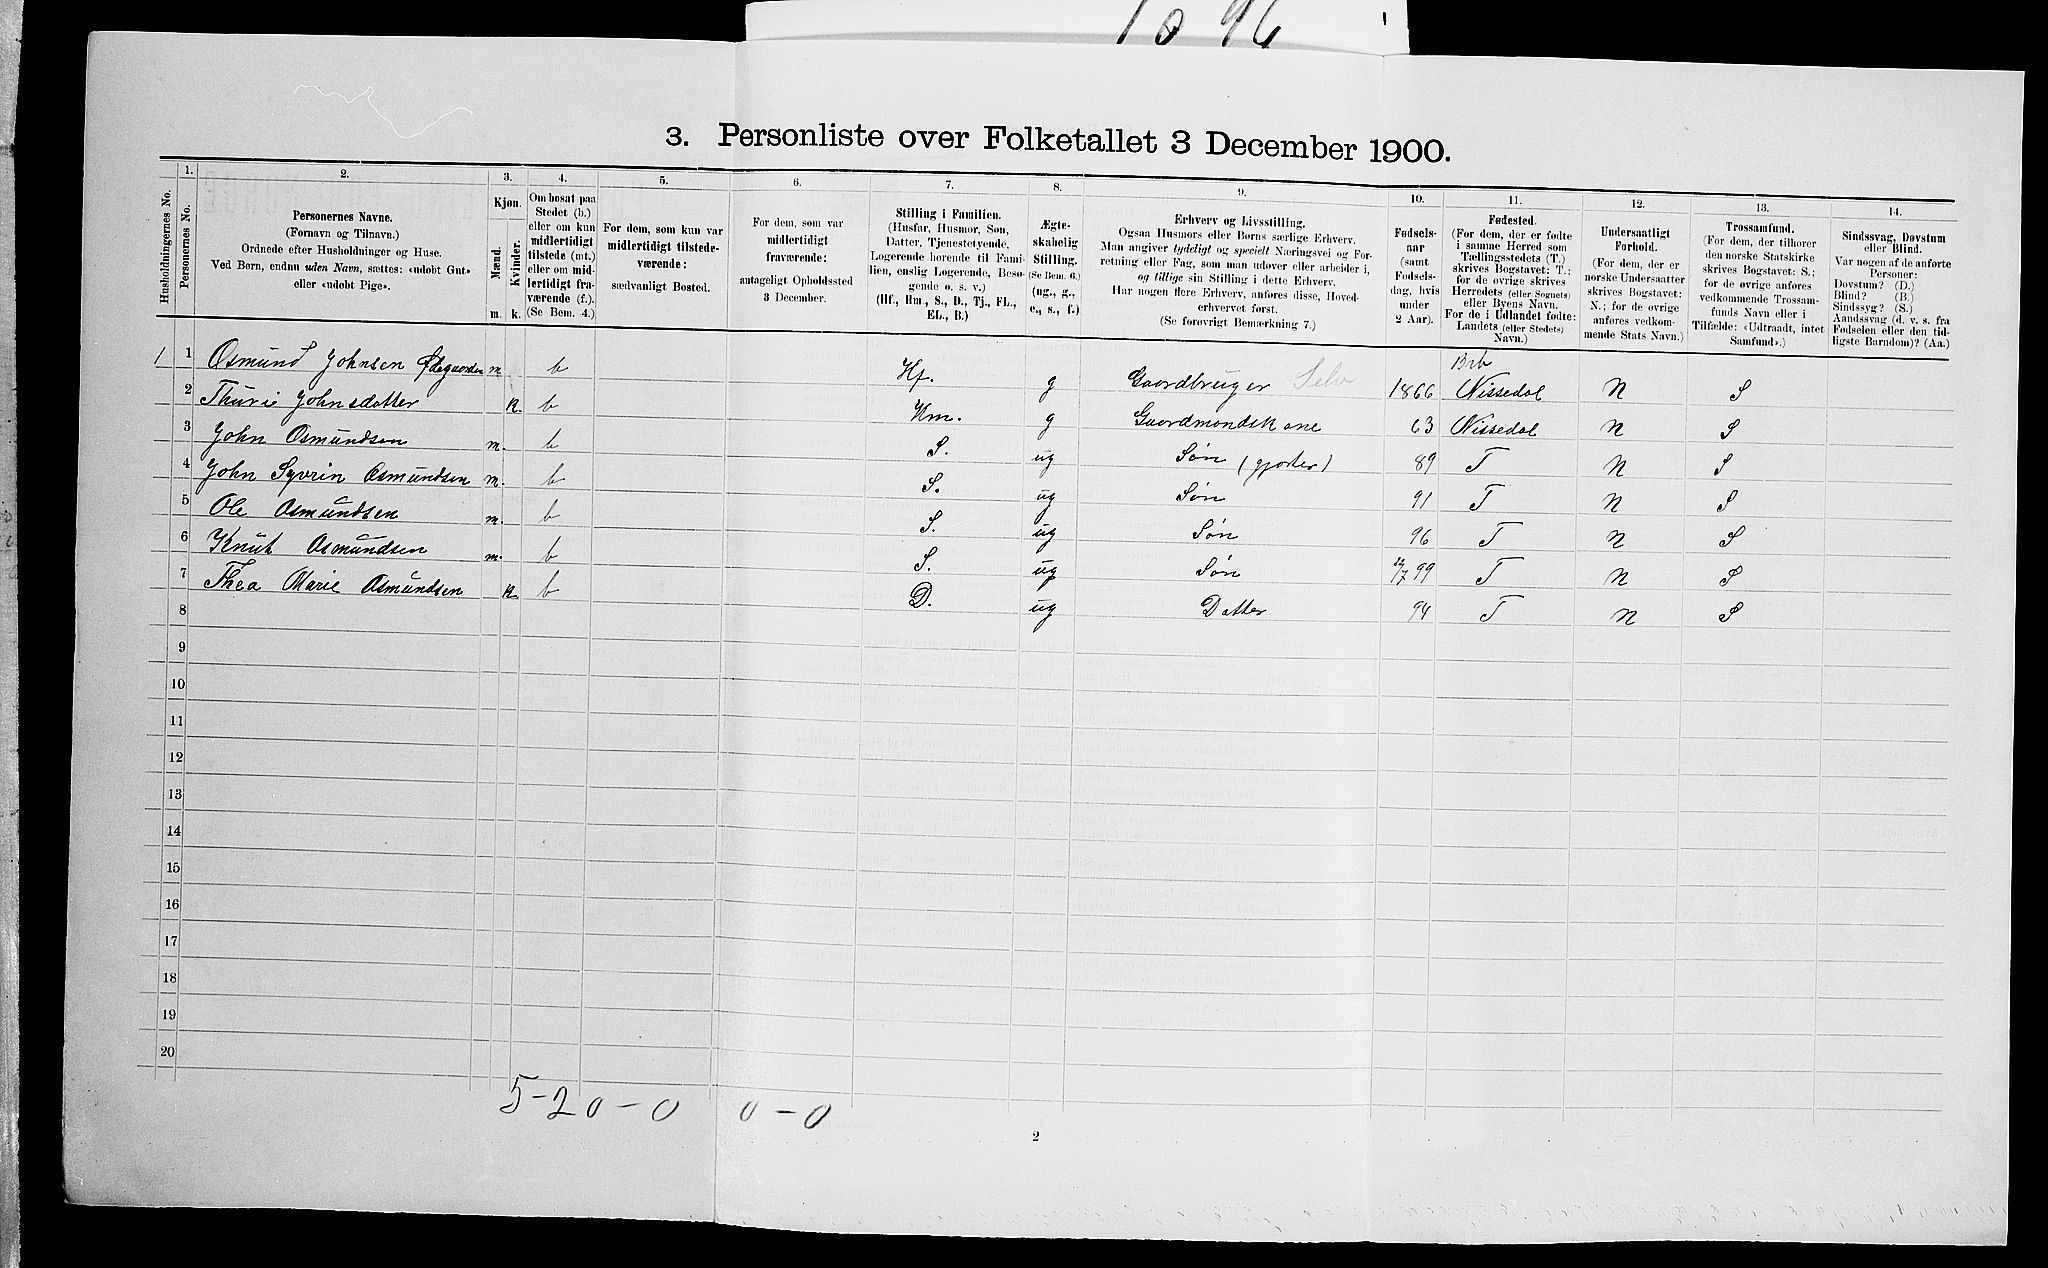 1096
3. Personliste over Folketallet 3 December 1900.
Husholdningernes No.
1.
Personernes No.
2.
Personernes Navne.
(Fornavn og Tilnavn.)
Ordnede efter Husholdninger og Huse.
Ved Børn, endnu uden Navn, sættes: «udøbt Gut»
eller «udøbt Pige».
3.
Kjøn.
Mænd.
Kvinder.
m. k.
4.
Om bosat paa
Stedet (b.)
eller om kun
midlertidigt
tilstede (mt.)
eller om mid-
lertidigt fra-
værende (f.).
(Se Bem. 4.)
5.
For dem, som kun var
midlertidigt tilstede-
værende:
sædvanligt Bosted.
6.
For dem, som var
midlertidigt
fraværende:
antageligt Opholdssted
3 December.
7.
Stilling i Familien.
(Husfar, Husmor, Søn,
Datter, Tjenestetyende,
Logerende hørende til Fami-
lien, enslig Logerende, Besø-
gende o. s. v.)
(Hf., Hm., S., D., Tj., FL.,
EL., B.)
8.
Ægte-
skabelig
Stilling.
(Se Bem. 6.)
(ug., g.,
e., s., f.)
9.
Erhverv og Livsstilling.
Ogsaa Husmors eller Børns særlige Erhverv.
Man angiver tydeligt og specielt Næringsvei og For-
retning eller Fag, som man udøver eller arbeider i,
og tillige sin Stilling i dette Erhverv.
Har nogen flere Erhverv, anføres disse, Hoved-
erhvervet først.
(Se forøvrigt Bemærkning 7.)
10.
Fødsels-
aar
(samt
Fødsels-
dag, hvis
under
2 Aar).
11.
Fødested.
(For dem, der er fødte
i samme Herred som
Tællingsstedets (T.)
skrives Bogstavet: T.;
for de øvrige skrives
Herredets (eller Sognets)
eller Byens Navn.
For de i Udlandet fødte:
Landets (eller Stedets)
Navn.)
12.
Undersaatligt
Forhold.
(For dem, der er
norske Undersaatter
skrives Bogstavet:
N.; for de øvrige
anføres vedkom-
mende Stats Navn.)
13.
Trossamfund.
(For dem, der tilhører
den norske Statskirke
skrives Bogstavet: S.;
for de øvrige anføres
vedkommende Trossam-
funds Navn eller i
Tilfælde: «Udtraadt, intet
Samfund».)
14.
Sindssvag, Døvstum
eller Blind.
Var nogen af de anførte
Personer:
Døvstum? (D.)
Blind? (B.)
Sindssyg? (S.)
Aandssvag (d. v. s. fra
Fødselen eller den tid-
ligste Barndom)? (Aa.)
1 1 Osmund Johnsen Ødegaarden m b Hf. g Gaardbruger Selv 1866 Brb Nissedal N S
2 Thurie Johnsdatter k. b Hm. g Gaardmandskone 63 Nissedal N S
3 John Osmundsen m. b S. ug Søn (gjæter) 89 T N S
4 John Syvrin Osmundsen m. b S. ug Søn 91 T N S
5 Ole Osmundsen m. b S. ug Søn 96 T N S
6 Knut Osmundsen m. b S. ug Søn 99 T N S
7 Thea Marie Osmundsen k b D. ug Datter 94 T N S
8
9
10
11
12
13
14
15
16
17
18
19
20
5-20-0 0-0
2